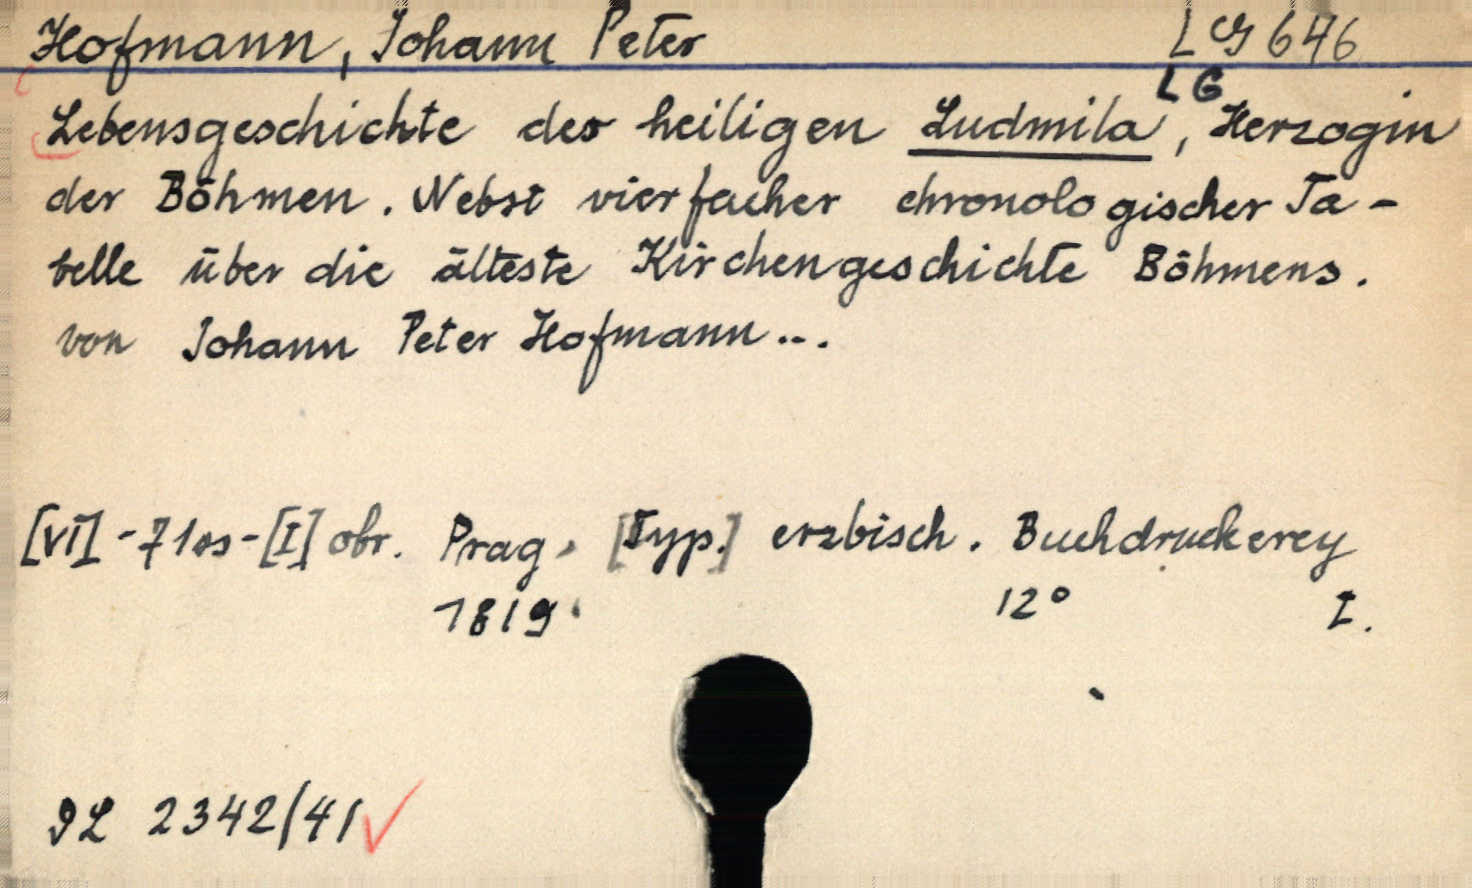 Hofmann, Johann Peter LG 646
LG
Lebensgeschichte der heiligen Ludmila, Herzogin
der Böhmen. Nebst vierfacher chronologischer Ta-
belle über die älteste Kirchengeschichte Böhmens.
von Johann Peter Hofmann...
[VI] - 71 os - [I] obr. Prag. [Typ.] erzbisch. Buchdruckerey
1819. 12° I.
9L 2342/41